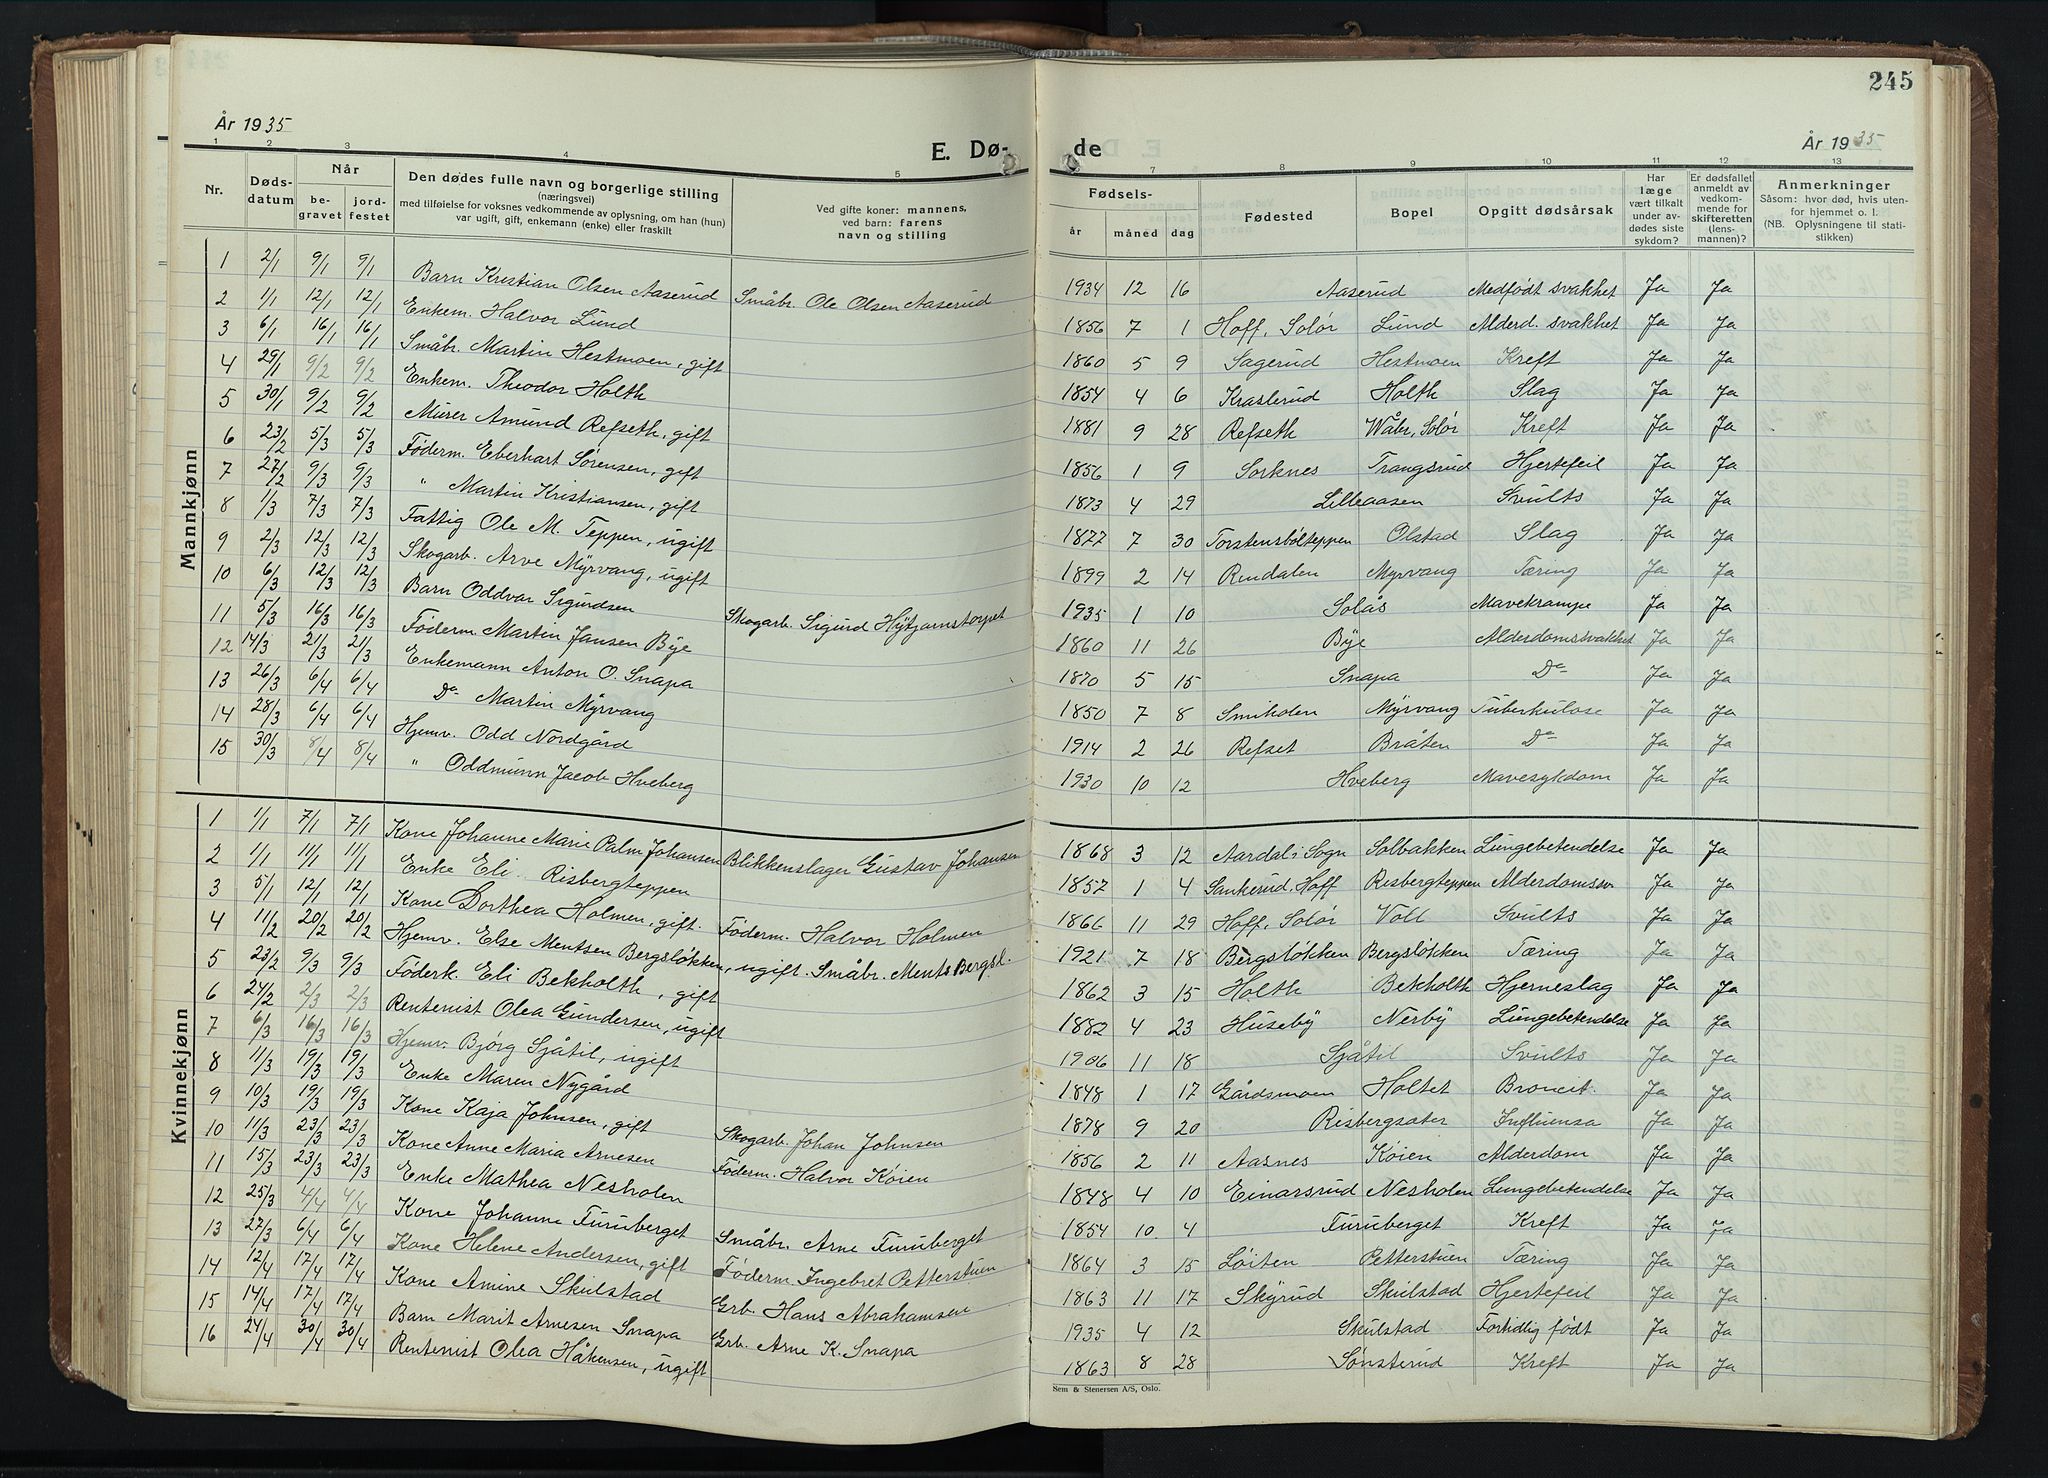 245
År 1935
E. Dø-
de
År 1935
1 2 3 4 5 7 8 9 10 11 12 13
Nr. Døds-datum Når be-gravet jord-festet Den dødes fulle navn og borgerlige stilling (næringsvei) med tilføielse for voksnes vedkommende av oplysning, om han (hun) var ugift, gift, enkemann (enke) eller fraskilt Ved gifte koner: mannens, ved barn: farens navn og stilling Fødsels- år måned dag Fødested Bopel Opgitt dødsårsak Har læge vært tilkalt under av-dødes siste sykdom? Er dødsfallet anmeldt av vedkom-mende for skifteretten (lens-mannen)? Anmerkninger Såsom: hvor død, hvis uten-for hjemmet o. l. (NB. Oplysningene til stati-stikken)
Mannkjønn
1 2/1 9/1 9/1 Barn Kristian Olsen Aaserud Småbr. Ole Olsen Aaserud 1934 12 16 Aaserud Medfødt svakhet Ja Ja
2 1/1 12/1 12/1 Enkem. Halvor Lund 1856 7 1 Hoff, Solør Lund Alderd. svakhet Ja Ja
3 6/1 16/1 16/1 Småbr. Martin Hestmoen, gift 1860 5 9 Sagerud Hestmoen Kreft Ja Ja
4 29/1 9/2 9/2 Enkem. Theodor Holth 1854 4 6 Kraslerud Holth Slag Ja Ja
5 30/1 9/2 9/2 Murer Amund Refseth, gift 1881 9 28 Refseth Wåbr, Solør Kreft Ja Ja
6 23/2 5/3 5/3 Føderm. Eberhart Sørensen, gift 1856 1 9 Sorknes Trangsrud Hjertefeil Ja Ja
7 27/2 9/3 9/3 " Martin Kristiansen, gift 1873 4 29 Lilleaasen Svults Ja Ja
8 1/3 7/3 7/3 Fattig Ole M. Teppen, ugift 1877 7 30 Torstensbølteppen Olstad Slag Ja Ja
9 2/3 12/3 12/3 Skogarb. Arve Myrvang, ugift 1899 2 14 Rendalen Myrvang Tæring Ja Ja
10 6/3 12/3 12/3 Barn Oddvar Sigurdsen Skogarb. Sigurd Hytjarnstorpet 1935 1 10 Solås Mavekrampe Ja Ja
11 5/3 16/3 16/3 Føderm. Martin Jansen Bye 1860 11 26 Bye Alderdomssvakhet Ja Ja
12 14/3 21/3 21/3 Enkemann Anton O. Snapa 1870 5 15 Snapa Do Ja Ja
13 26/3 6/4 6/4 Do Martin Myrvang 1850 7 8 Smiholen Myrvang Tuberkulose Ja Ja
14 28/3 6/4 6/4 Hjemv. Odd Nordgård 1914 2 26 Refset Bråten Do Ja Ja
15 30/3 8/4 8/4 " Oddmunn Jacob Hveberg 1930 10 12 Hveberg Mavesykdom Ja Ja
Kvinnekjønn
1 1/1 7/1 7/1 Kone Johanne Marie Palm Johansen Blikkenslager Gustav Johansen 1868 3 12 Aardal i Sogn Solbakken Lungebetendelse Ja Ja
2 1/1 11/1 11/1 Enke Eli Risbergteppen 1857 1 4 Sankerud, Hoff Risbergteppen Alderdomssv. Ja Ja
3 5/1 12/1 12/1 Kone Dorthea Holmen, gift. Føderm. Halvor Holmen 1866 11 29 Hoff, Solør Voll Svults Ja Ja
4 11/2 20/2 20/2 Hjemv. Else Mentsen Bergsløkken, ugift. Småbr. Ments Bergsl. 1921 7 18 Bergsløkken Bergsløkken Tæring Ja Ja
5 23/2 9/3 9/3 Føderk. Eli Bekholth, gift 1862 3 15 Holth Bekholth Hjerneslag Ja Ja
6 24/2 2/3 2/3 Rentenist Olea Gundersen, ugift 1882 4 23 Huseby Nerby Lungebetendelse Ja Ja
7 6/3 16/3 16/3 Hjemv. Bjørg Sjåtil, ugift 1906 11 18 Sjåtil Svults Ja Ja
8 11/3 19/3 19/3 Enke Maren Nygård 1848 1 17 Gårdsmoen Holtet Broncit. Ja Ja
9 10/3 19/3 19/3 Kone Kaja Johnsen, gift Skogarb. Johan Johnsen 1878 9 20 Risbergsæter Influensa Ja Ja
10 11/3 23/3 23/3 Kone Anne Maria Arnesen Føderm. Halvor Køien 1856 2 11 Aasnes Køien Alderdom Ja Ja
11 15/3 23/3 23/3 Enke Mathea Nesholen 1848 4 10 Einarsrud Nesholen Lungebetendelse Ja Ja
12 25/3 4/4 4/4 Kone Johanne Furuberget Småbr. Arne Furuberget 1854 10 4 Furuberget Kreft Ja Ja
13 27/3 6/4 6/4 Kone Helene Andersen, gift Føderm. Ingebret Petterstuen 1864 3 15 Løiten Petterstuen Tæring Ja Ja
14 12/4 17/4 17/4 Kone Amine Skulstad Grb. Hans Abrahamsen 1863 11 17 Skyrud Skulstad Hjertefeil Ja Ja
15 14/4 17/4 17/4 Barn Marit Arnesen Snapa Grb. Arne K. Snapa 1935 4 12 Skulstad Fortidlig født Ja Ja
16 24/4 30/4 30/4 Rentenist Olea Håkensen, ugift 1863 8 28 Sønsterud Kreft Ja Ja
Sem & Stenersen A/S, Oslo.